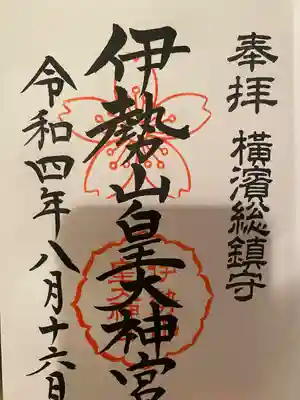 奉拝 横濱総鎮守
伊勢山皇大神宮
令和四年八月十六日